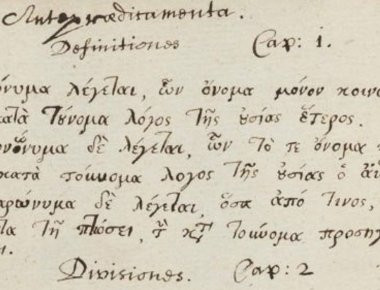 Antepraedicamenta.
Definitiones Cap: 1.
ώνυμα λέγεται, ὧν ὄνομα μόνον κοινὸ
κατὰ τὔνομα λόγος τῆς ὐσίας ἕτερος.
νώνυμα δὲ λέγεται, ὧν τό τε ὄνομα κ
κατὰ τοὔνομα λογος τῆς ὐσίας ὁ αὐ
αρώνυμα δὲ λέγεται, ὅσα ἀπό τινος,
τῇ πτώσει, τοὔνομα προση
Divisiones. Cap: 2